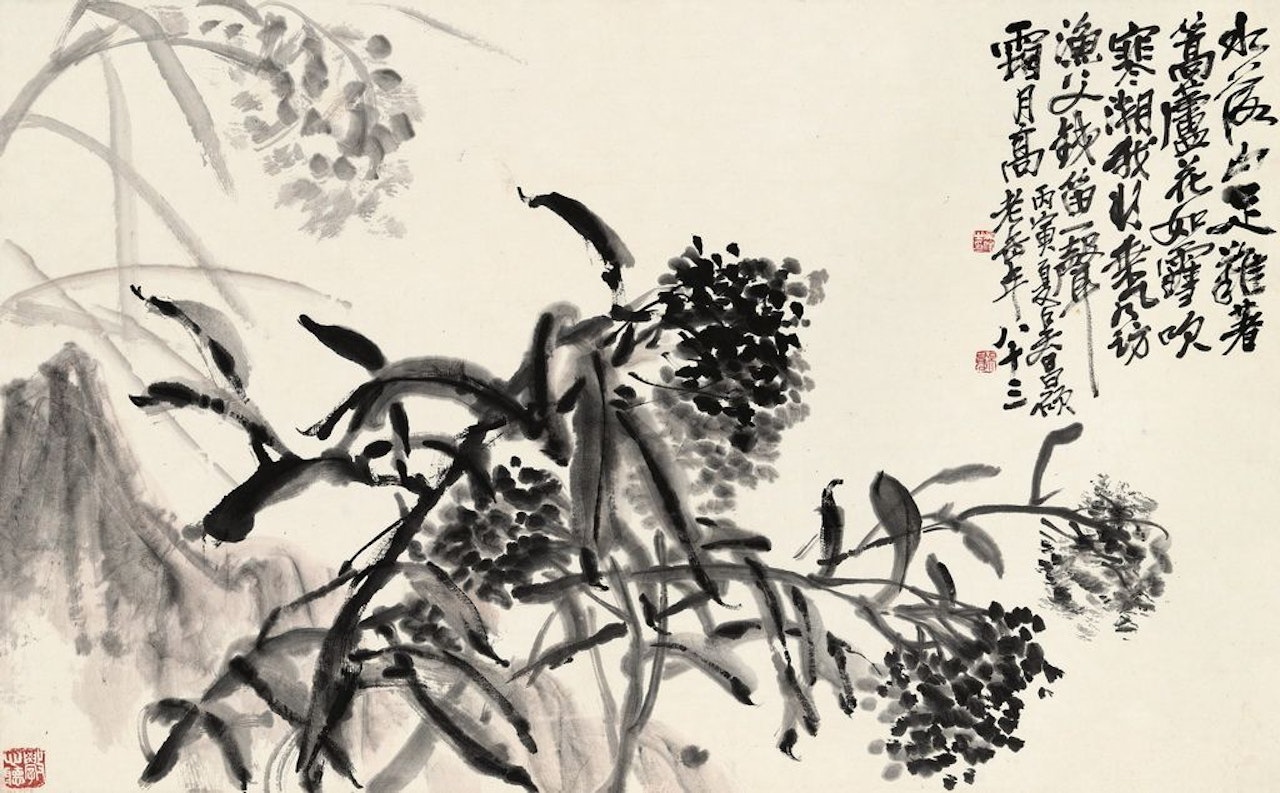 水落山足難著
篙蘆花如雪吹
寒潮我欲乘風訪
漁父鐵笛一聲
霜月高
丙寅夏吳昌碩
老缶年八十三